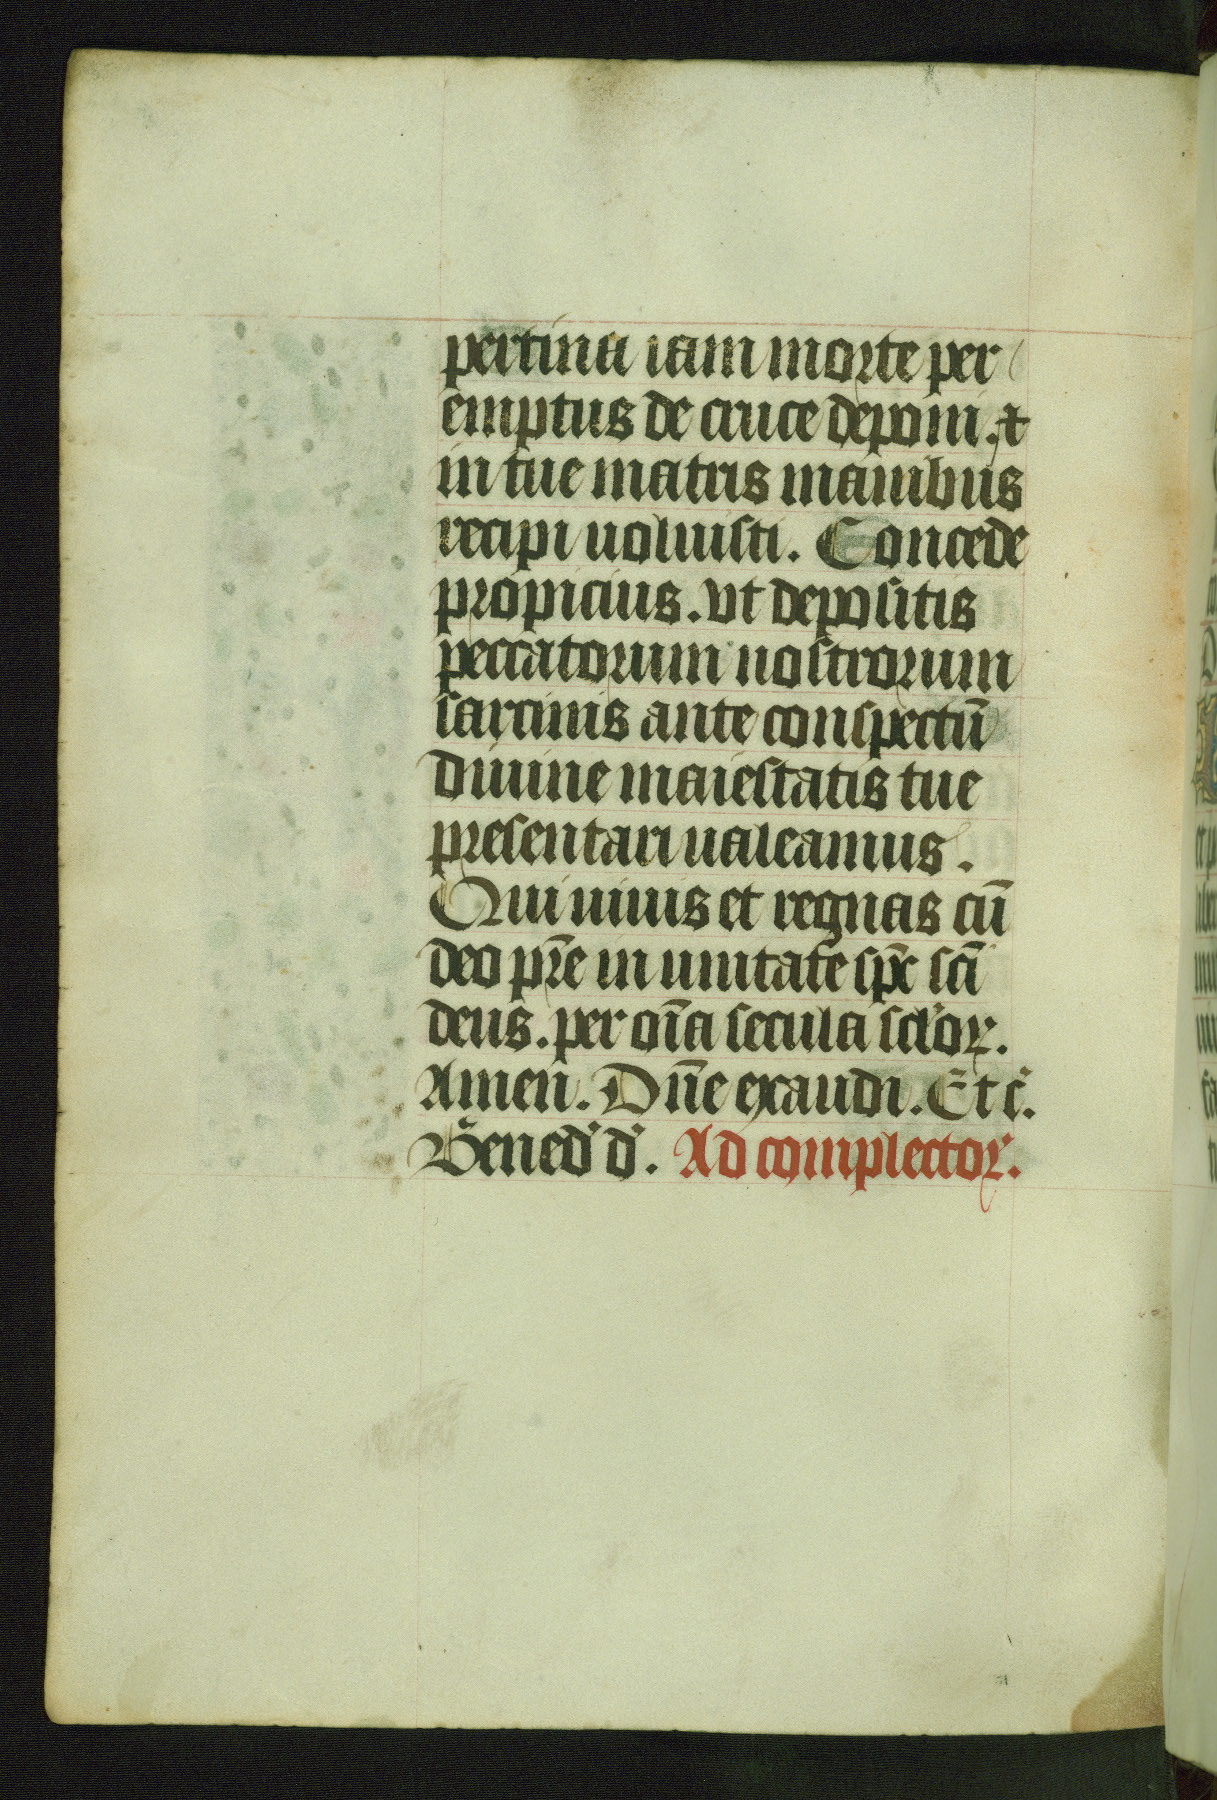 pertina iam morte per
emptus de cruce deponi. ⁊
in tue matris manibus
recipi uoluisti. Concede
propicius. vt depositis
peccatorum nostrorum
sarcinis ante conspectū
diuine maiestatis tue
presentari ualeamus.
Qui uiuis et regnas cū
deo pr̄e in unitate sp̄c sc̄i
deus. per oīa secula scl'oꝝ.
Amen. Dn̄e exaudi. Et c̄.
Bened' d'. Ad complectoꝝ.